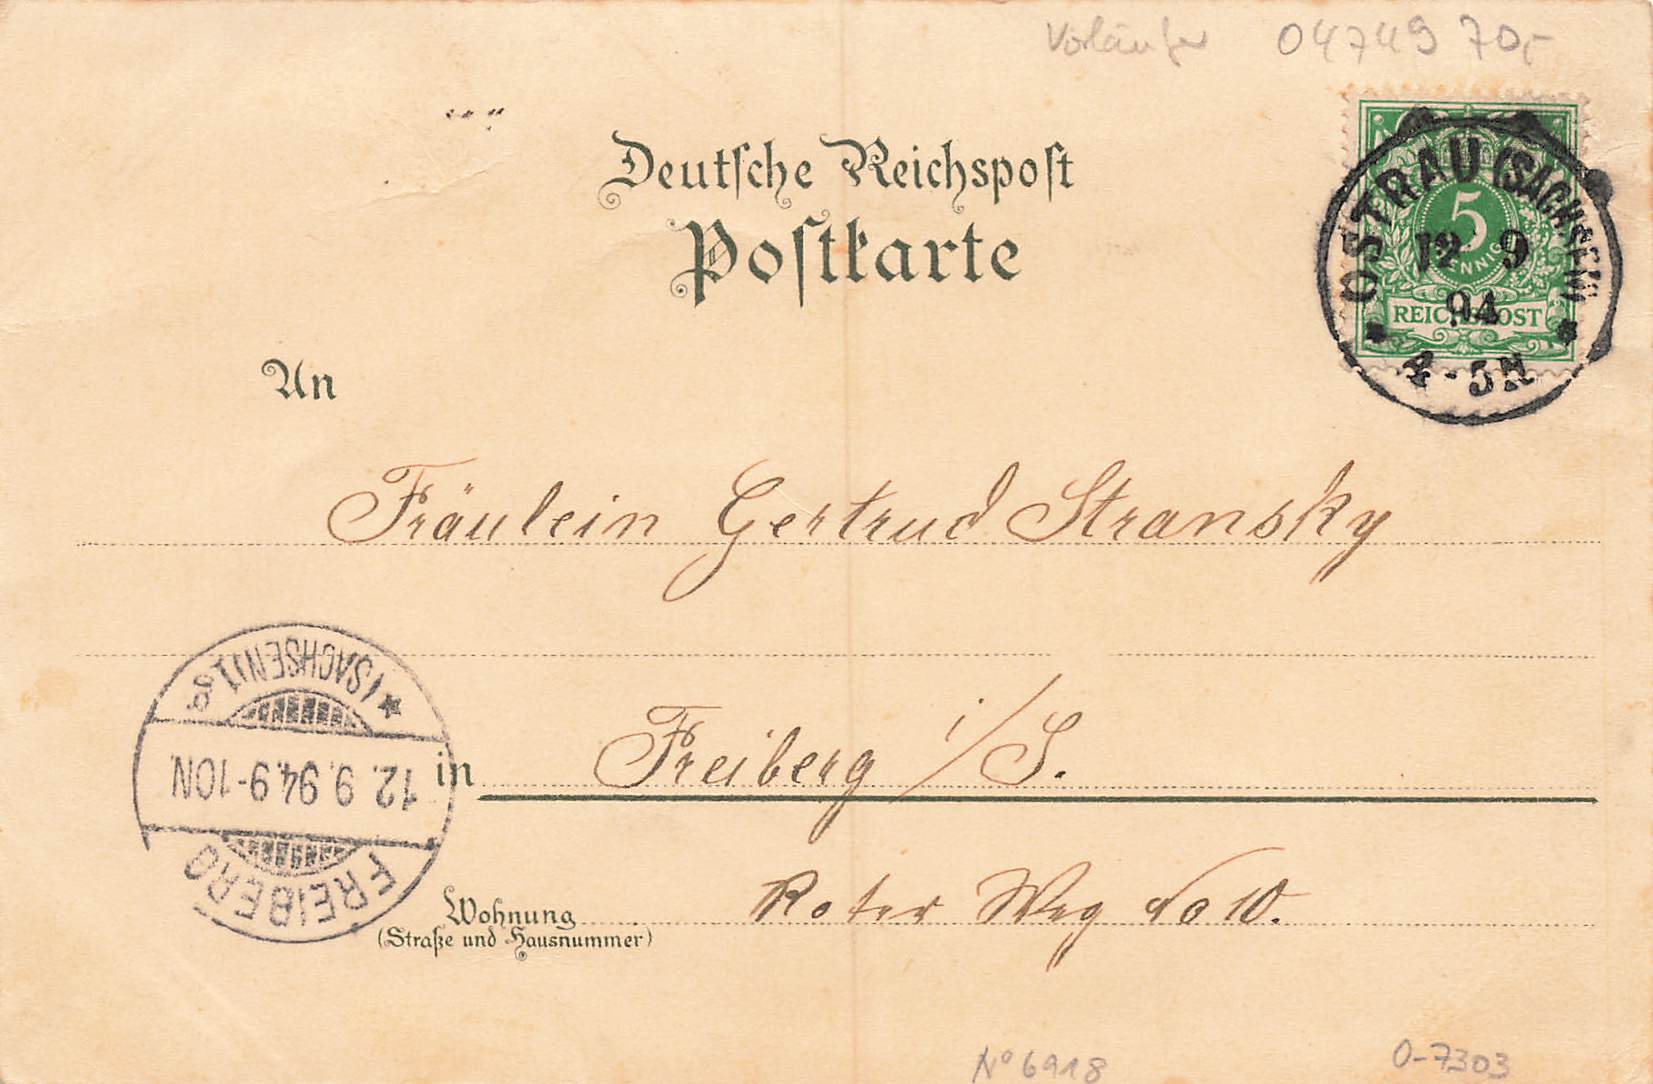 Vorläufer 04749 70,-
Deutsche Reichspost
Postkarte
5
PFENNIG
REICHSPOST
OSTRAU (SACHSEN)
12 9
94
4-5N
An
Fräulein Gertrud Stransky
in Freiberg i/S.
Wohnung Roter Weg No 10.
(Straße und Hausnummer)
FREIBERG
12.9.94.9-10N.
(SACHSEN)1
No 6918
O-7303